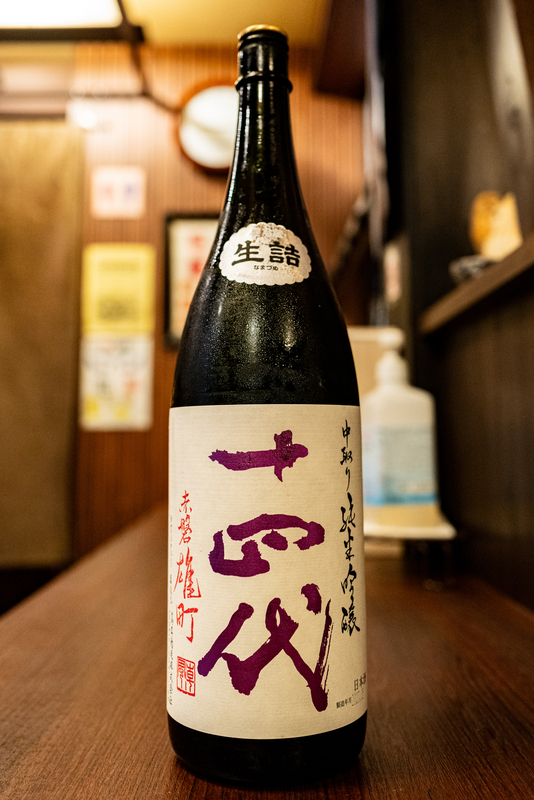 生詰
なまづめ
中取り純米吟醸
十四代
赤磐雄町
日本酒
製造年月